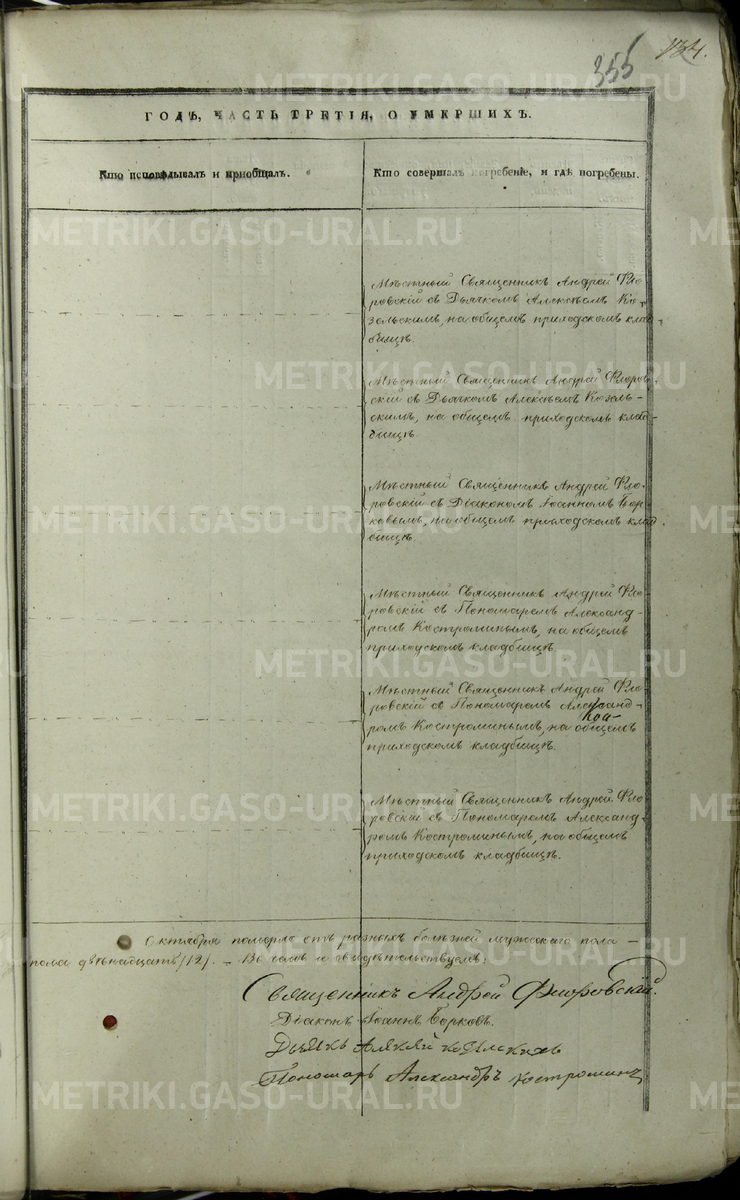 355
154.
METRIKI.GASO-URAL.RU
ГОДѢ, ЧАСТЬ ТРЕТІЯ, О УМЕРШИХЪ.
Кто исповѣдывалъ и пріобщалъ.
Кто совершалъ погребеніе, и гдѣ погребены.
Мѣстный Священникъ Андрей Фло-
ровскій съ Дьячкомъ Алексѣемъ Ко-
зельскимъ, на общемъ приходскомъ клад-
бищѣ.
Мѣстный Священникъ Андрей Флоров-
скій съ Дьячкомъ Алексѣемъ Козель-
скимъ, на общемъ приходскомъ клад-
бищѣ
Мѣстный Священникъ Андрей Фло-
ровскій съ Діакономъ Іоанномъ Бор-
ковымъ, на общемъ приходскомъ клад-
бищѣ
Мѣстный Священникъ Андрей Фло-
ровскій съ Пономаремъ Александ-
ромъ Костроминымъ, на общемъ
приходскомъ кладбищѣ.
Мѣстный Священникъ Андрей Фло-
ровскій съ Пономаремъ Александ-
ромъ Костроминымъ, на общемъ
приходскомъ кладбищѣ.
Мѣстный Священникъ Андрей Фло-
ровскій съ Пономаремъ Александ-
ромъ Костроминымъ, на общемъ
приходскомъ кладбищѣ.
Октября померло отъ разныхъ болѣзней мужескаго пола –
пола двѣнадцать /12/. – Въ чемъ и свидѣтельствуемъ:
Священникъ Андрей Флоровскій.
Діаконъ Іоаннъ Борковъ.
Дьячкъ
Пономарь Александръ Костроминъ